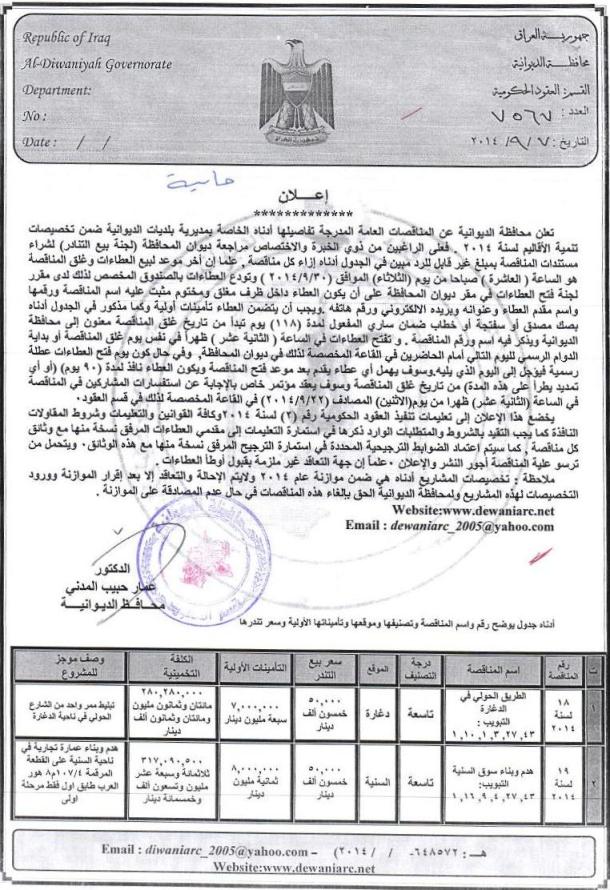 Republic of Iraq
Al-Diwaniyah Governorate
Department:
No :
Date :     /     /
جمهورية العراق
محافظة الديوانية
القسم: العقود الحكومية
العدد: ٧٥٦٧
التاريخ: ٢٠١٤/٩/٧
إعلان
**************
تعلن محافظة الديوانية عن المناقصات العامة المدرجة تفاصيلها أدناه الخاصة بمديرية بلديات الديوانية ضمن تخصيصات
تنمية الأقاليم لسنة ٢٠١٤. فعلى الراغبين من ذوي الخبرة والاختصاص مراجعة ديوان المحافظة (لجنة بيع التنادر) لشراء
مستندات المناقصة بمبلغ غير قابل للرد مبين في الجدول أدناه إزاء كل مناقصة, علما إن آخر موعد لبيع العطاءات وغلق المناقصة
هو الساعة ( العاشرة ) صباحا من يوم (الثلاثاء) الموافق (٢٠١٤/٩/٣٠ ) وتودع العطاءات بالصندوق المخصص لذلك لدى مقرر
لجنة فتح العطاءات في مقر ديوان المحافظة على أن يكون العطاء داخل ظرف مغلق ومختوم مثبت عليه اسم المناقصة ورقمها
واسم مقدم العطاء وعنوانه وبريده الالكتروني ورقم هاتفه .ويجب أن يتضمن العطاء تأمينات أولية وكما مذكور في الجدول أدناه
بصك مصدق أو سفتجة أو خطاب ضمان ساري المفعول لمدة (١١٨) يوم تبدأ من تاريخ غلق المناقصة معنون إلى محافظة
الديوانية ويذكر فيه اسم ورقم المناقصة . و تفتح العطاءات في الساعة ( الثانية عشر ) ظهراً في نفس يوم غلق المناقصة أو بداية
الدوام الرسمي لليوم التالي أمام الحاضرين في القاعة المخصصة لذلك في ديوان المحافظة, وفي حال كون يوم فتح العطاءات عطلة
رسمية فيؤجل إلى اليوم الذي يليه.وسوف يهمل أي عطاء يقدم بعد موعد فتح المناقصة ويكون العطاء نافذ لمدة (٩٠ يوم) (أو أي
تمديد يطرأ على هذه المدة) من تاريخ غلق المناقصة وسوف يعقد مؤتمر خاص بالإجابة عن استفسارات المشاركين في المناقصة
في الساعة (الثانية عشر) ظهرا من يوم(الاثنين) المصادف (٢٠١٤/٩/٢٢) في القاعة المخصصة لذلك في قسم العقود.
يخضع هذا الإعلان إلى تعليمات تنفيذ العقود الحكومية رقم (٢) لسنة ٢٠١٤وكافة القوانين والتعليمات وشروط المقاولات
النافذة كما يجب التقيد بالشروط والمتطلبات الوارد ذكرها في استمارة التعليمات إلى مقدمي العطاءات المرفق نسخة منها مع وثائق
كل مناقصة , كما سيتم اعتماد الضوابط الترجيحية المحددة في استمارة الترجيح المرفق نسخة منها مع هذه الوثائق. ويتحمل من
ترسو علية المناقصة أجور النشر والإعلان ٠علماً إن جهة التعاقد غير ملزمة بقبول أوطأ العطاءات .
ملاحظة : تخصيصات المشاريع أدناه هي ضمن موازنة عام ٢٠١٤ ولايتم الإحالة والتعاقد إلا بعد إقرار الموازنة وورود
التخصيصات لهذه المشاريع ولمحافظة الديوانية الحق بإلغاء هذه المناقصات في حال عدم المصادقة على الموازنة .
Website:www.dewaniarc.net
Email : dewaniarc_2005@yahoo.com
الدكتور
عمار حبيب المدني
محافظ الديوانية
أدناه جدول يوضح رقم واسم المناقصة وتصنيفها وموقعها وتأميناتها الأولية وسعر تندرها
ت رقم المناقصة اسم المناقصة درجة التصنيف الموقع سعر بيع التندر التأمينات الأولية الكلفة التخمينية وصف موجز للمشروع
١ ١٨ لسنة ٢٠١٤ الطريق الحولي في الدغارة التبويب: ١,١٠,١,٣,٢٧,٤٣ تاسعة دغارة ٥٠,٠٠٠ خمسون ألف دينار ٧,٠٠٠,٠٠٠ سبعة مليون دينار ٢٨٠,٢٨٠,٠٠٠ مائتان وثمانون مليون ومائتان وثمانون ألف دينار تبليط ممر واحد من الشارع الحولي في ناحية الدغارة
٢ ١٩ لسنة ٢٠١٤ هدم وبناء سوق السنية التبويب: ١,١٦,٩,٤,٢٧,٤٣ تاسعة السنية ٥٠,٠٠٠ خمسون ألف دينار ٨,٠٠٠,٠٠٠ ثمانية مليون دينار ٣١٧,٠٩٠,٥٠٠ ثلاثمائة وسبعة عشر مليون وتسعون ألف وخمسمائة دينار هدم وبناء عمارة تجارية في ناحية السنية على القطعة المرقمة ١٠٧/٤م٨ هور العرب طابق اول فقط مرحلة اولى
Email : diwaniarc_2005@yahoo.com – (٢٠١٤ /   /   هـ : ٦٤٨٥٧٢-
Website:www.dewaniarc.net